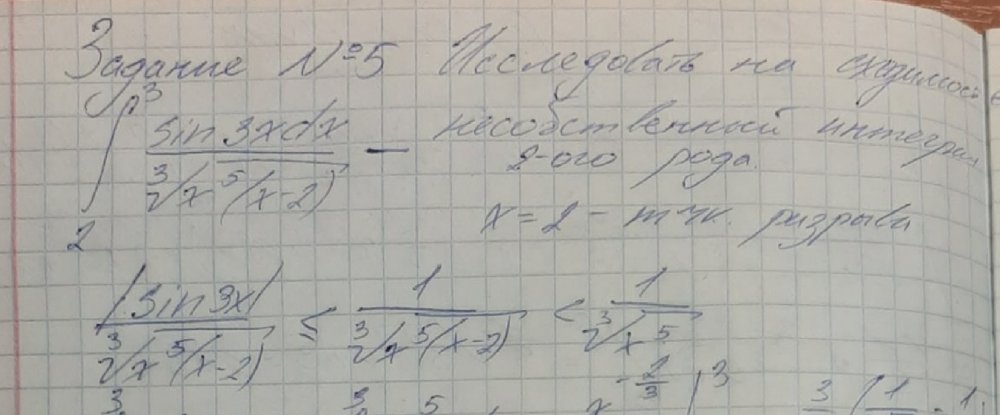 Задание №5 Исследовать на сходимость
∫₂³ sin 3x dx / ∛(x⁵(x-2)) — несобственный интеграл
2-ого рода.
x = 2 - тчк. разрыва
|sin 3x| / ∛(x⁵(x-2)) ≤ 1 / ∛(x⁵(x-2)) < 1 / ∛(x⁵)